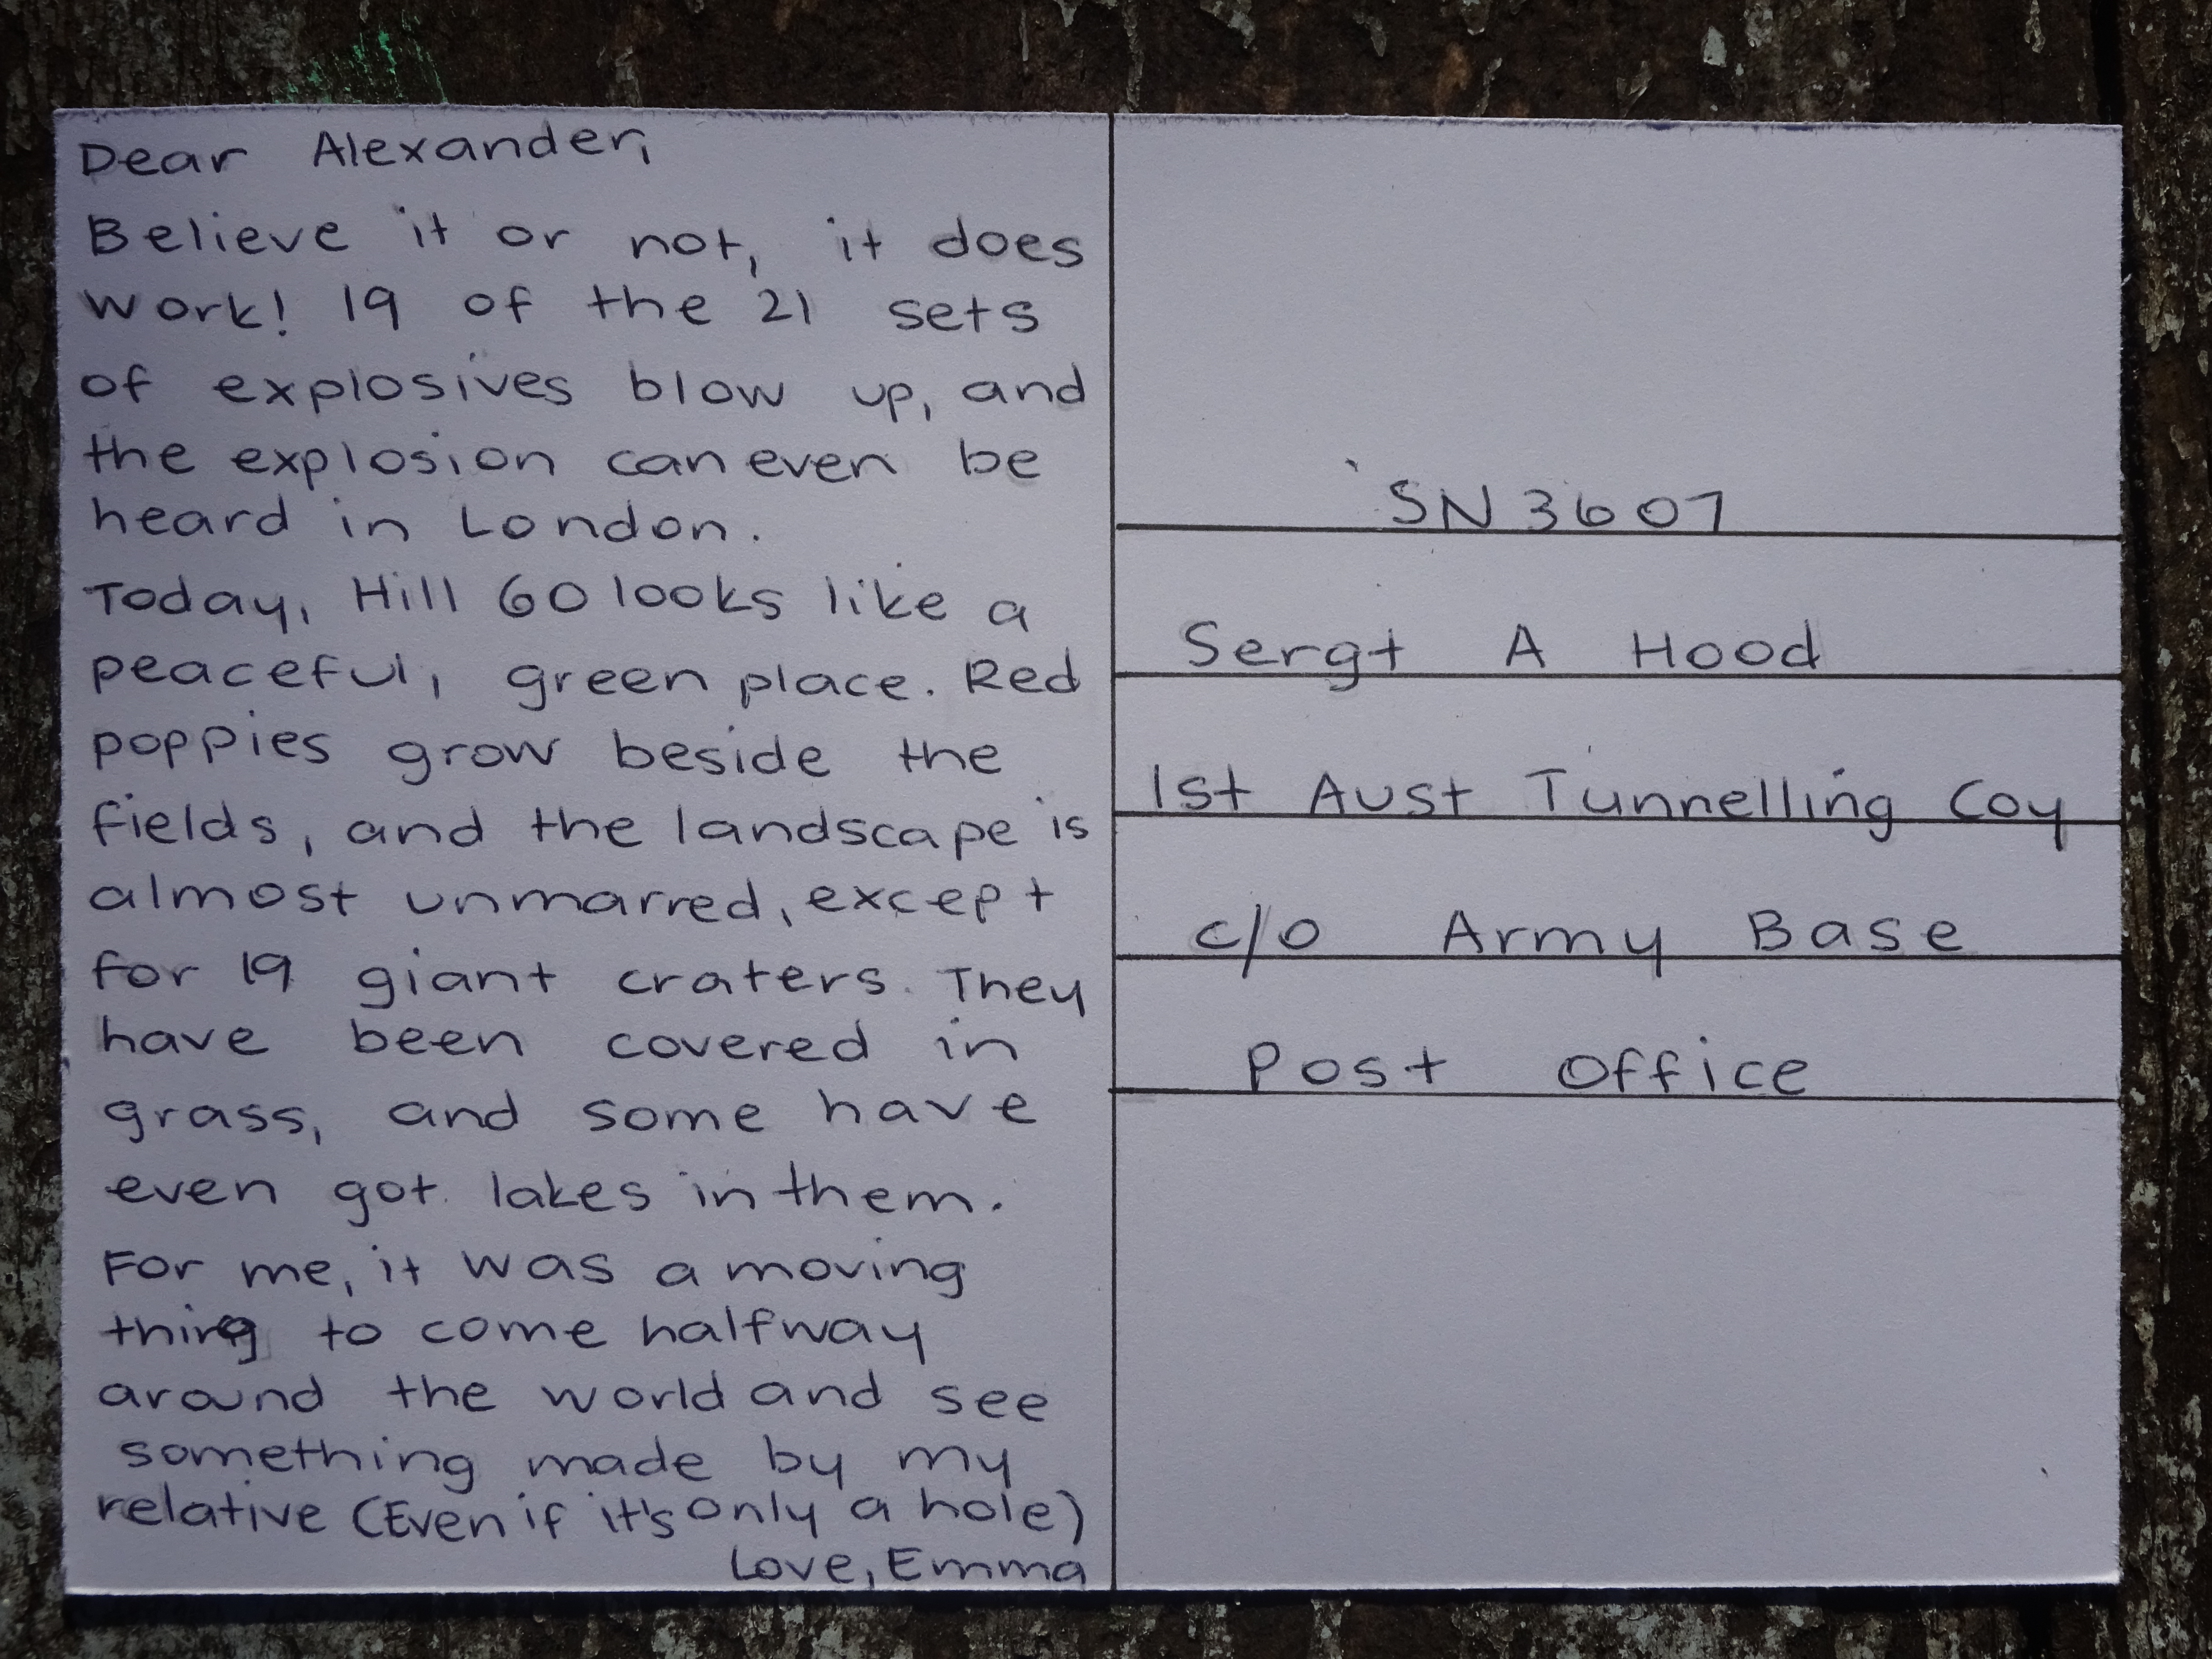 Dear Alexander,
Believe it or not, it does
work! 19 of the 21 sets
of explosives blow up, and
the explosion can even be
heard in London.
Today, Hill 60 looks like a
peaceful, green place. Red
poppies grow beside the
fields, and the landscape is
almost unmarred, except
for 19 giant craters. They
have been covered in
grass, and some have
even got lakes in them.
For me, it was a moving
thing to come halfway
around the world and see
something made by my
relative (Even if it's only a hole)
Love, Emma
SN 3607
Sergt A Hood
1st Aust Tunnelling Coy
c/o Army Base
Post Office